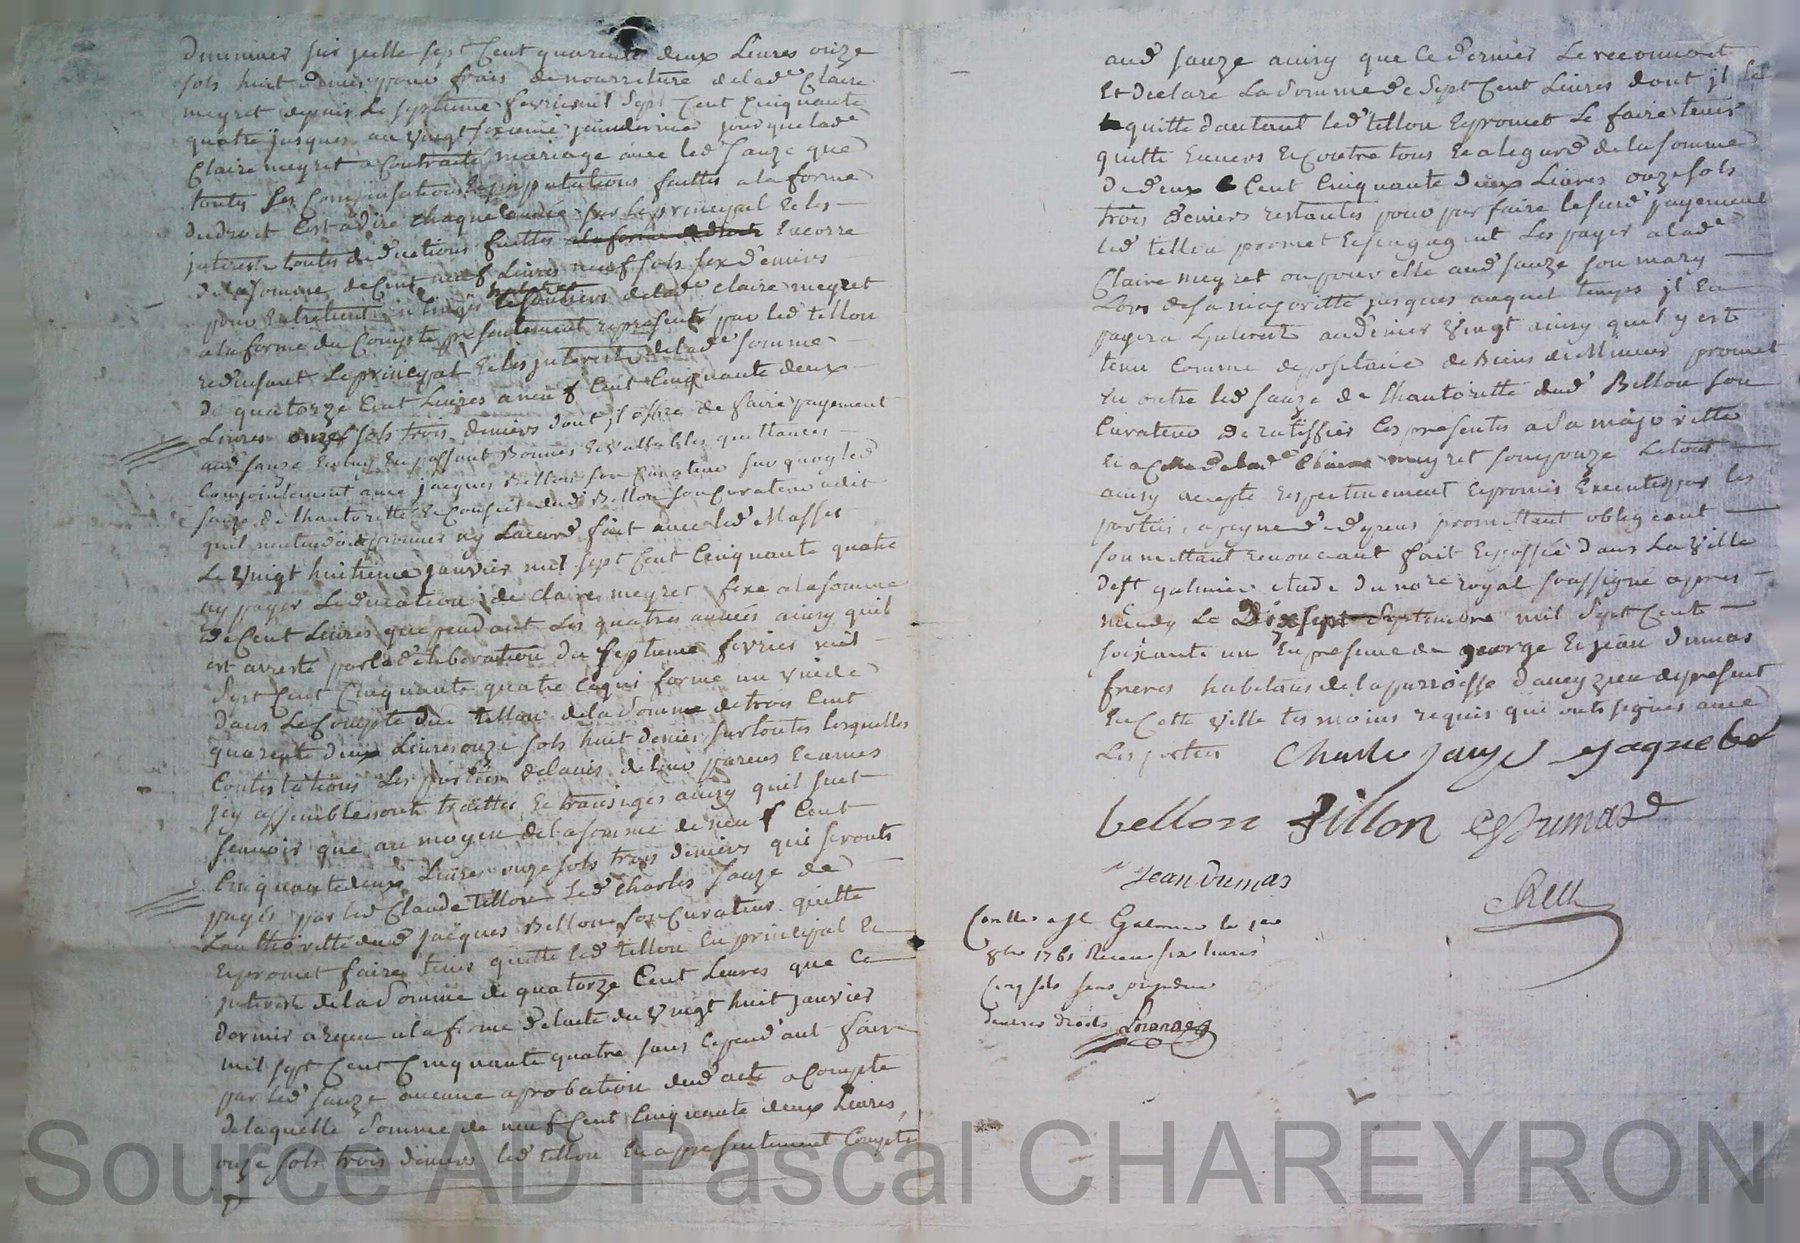 diminuer sur icelle sept Cent quarente deux Livres onze
sols huit deniers pour frais de nourriture de lade Claire
meyret depuis Le septieme fevrier mil Sept Cent Cinquante
quatre jusques au vingt sixieme juin dernier jour que lade
Claire meyret a Contracté mariage avec led Sauze que
toutes les Compensations et imputations faittes a la forme
du droit C'est a dire chaque année sur le principal et les
interests toutes deductions faittes encorre
de la somme de Cent neuf Livres neuf sols six deniers
pour Entretient en linges de lade Claire meyret
a la forme du Compte presentement representé par led tellon
reduisant Le principal et les interests de lade somme
de quatorze Cent Livres a neuf Cent Cinquante deux
Livres onze sols trois deniers dont il offre de faire payement
aud sauze en luy en passant Bonnes et vallables quittances
Conjointement avec jacques Bellon son Curateur sur quoy led
sauze de l'hautoritté et Conseil dud Bellon son Curateur a dit
qu'il n'entendoit ny Lacord fait avec led Masset
Le vingt huitieme janvier mil sept Cent Cinquante quatre
ny payer L'education de Claire meyret fixé a la somme
de Cent Livres que pendant les quatres années ainsy quil
est aresté par la deliberation du septieme fevrier mil
Sept Cent Cinquante quatre Ce qui forme un vuide
dans Le Compte dud tellon de la somme de trois Cent
quarente deux Livres onze sols huit deniers sur toutes lesquelles
Contestations Les parties de lavis de leur parens et amis
icy assemblés ont traittés et transiges ainsy quil suit
scavoir que au moyen de la somme de neuf Cent
Cinquante deux Livres onze sols trois deniers qui seronts
payés par led Claude tellon led Charles sauze de
Lauthoritté dud jacques Bellon son Curateur quitte
et promet faire tenir quitte led tellon En principal et
interest de la somme de quatorze Cent Livres que Ce
dernier a reçu a la forme de l'acte du vingt huit janvier
mil sept Cent Cinquante quatre sans Cependant faire
par led sauze aucune aprobation dud acte a Compte
de laquelle somme de neuf Cent Cinquante deux Livres
onze sols trois deniers led tellon En a presentement Compté
aud sauze ainsy que Ce dernier Le reconnoit
Et declare La somme de Sept Cent Livres dont il
quitte dautant led tellon et promet Le faire tenir
quitte Envers et Contre tous et a legard de la somme
de deux Cent Cinquante deux Livres onze sols
trois deniers restantes pour parfaire le susd payement
led tellon promet et sengage Les payer a lade
Claire meyret ou pour elle aud sauze son mary
Lors de sa majoritté jusques auquel temps il En
payera L'interest au denier vingt ainsy quil y est
tenu Comme depositaire de Biens de Mineur promet
En outre led sauze de l'hautoritté dud Bellon son
Curateur de ratiffier Ces presentes a sa majoritté
et a Celle de lade Claire meyret son epouze Le tout
ainsy accepté respectivement et promis Executer par les
parties, a peyne de depens promettant obligeant
soumettant renonceant fait et passé dans La ville
de st galmier etude du nore royal soussigné apres
Le Dixsept Septembre mil Sept Cent
soixante un En presence de george et jean dumas
freres habitans de la parroisse d'aveyzieu de present
En Cette ville tesmoins requis qui onts signés avec
Les parties Charle Sauze Jaque be
bellon Tillon G Dumas
Jean Dumas
Conllé a St Galmier le 1er
8bre 1761 Receu six livres
Cinq sols sans prejudice
dautres droits